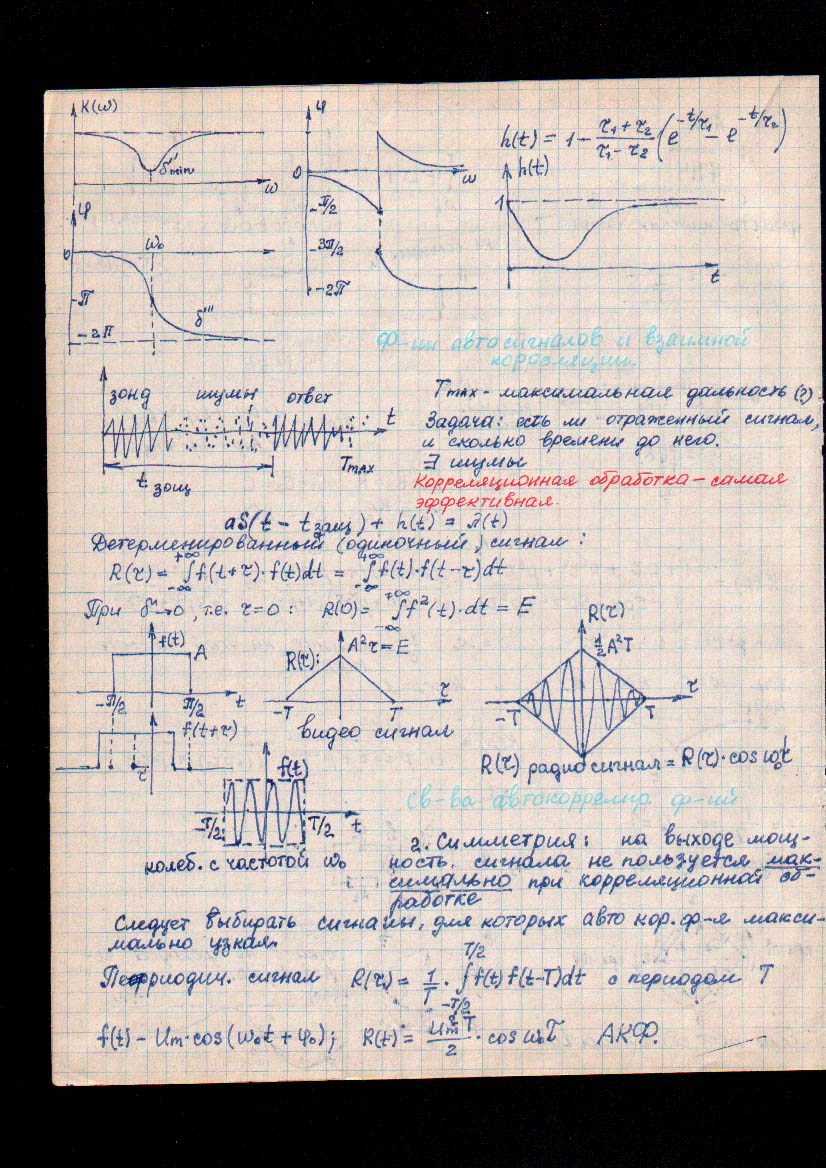 K(ω)
δ''min
ω
φ
0
ω₀
-π
-2π
δ'''
φ
0
ω
-π/2
-3π/2
-2π
h(t) = 1 - (τ₁+τ₂)/(τ₁-τ₂) (e^(-t/τ₁) - e^(-t/τ₂))
h(t)
1
t
Ф-ии автосигналов и взаимной
корреляции.
зонд шумы ответ
t
Tmax
t зонд
Tmax - максимальная дальность (?)
Задача: есть ли отраженный сигнал,
и сколько времени до него.
∃ шумы
Корреляционная обработка – самая
эффективная.
aS(t - t защ) + h(t) = x(t)
Детерменированный (одиночный) сигнал:
R(τ) = ∫₋∞⁺∞ f(t+τ)·f(t)dt = ∫₋∞⁺∞ f(t)·f(t-τ)dt
При τ=0: R(0) = ∫₋∞⁺∞ f²(t)·dt = E
f(t)
A
-π/2
π/2
t
R(τ):
A²τ = E
-T
T
τ
видео сигнал
R(τ)
½A²T
-T
T
τ
R(τ) радиосигнал = R(τ)·cos ω₀τ
f(t+τ)
τ
f(t)
-T/2
T/2
t
колеб. с частотой ω₀
Св-ва автокоррелир. ф-ий
2. Симметрия: на выходе мощ-
ность. сигнала не пользуется мак-
симально при корреляционной об-
работке
Следует выбирать сигналы, для которых авто кор. ф-я макси-
мально узкая.
Периодич. сигнал R(τ) = 1/T · ∫₋T/2^T/2 f(t) f(t-T)dt с периодом T
f(t) - Um·cos(ω₀t + φ₀); R(t) = Um²T/2 · cos ω₀T АКФ.